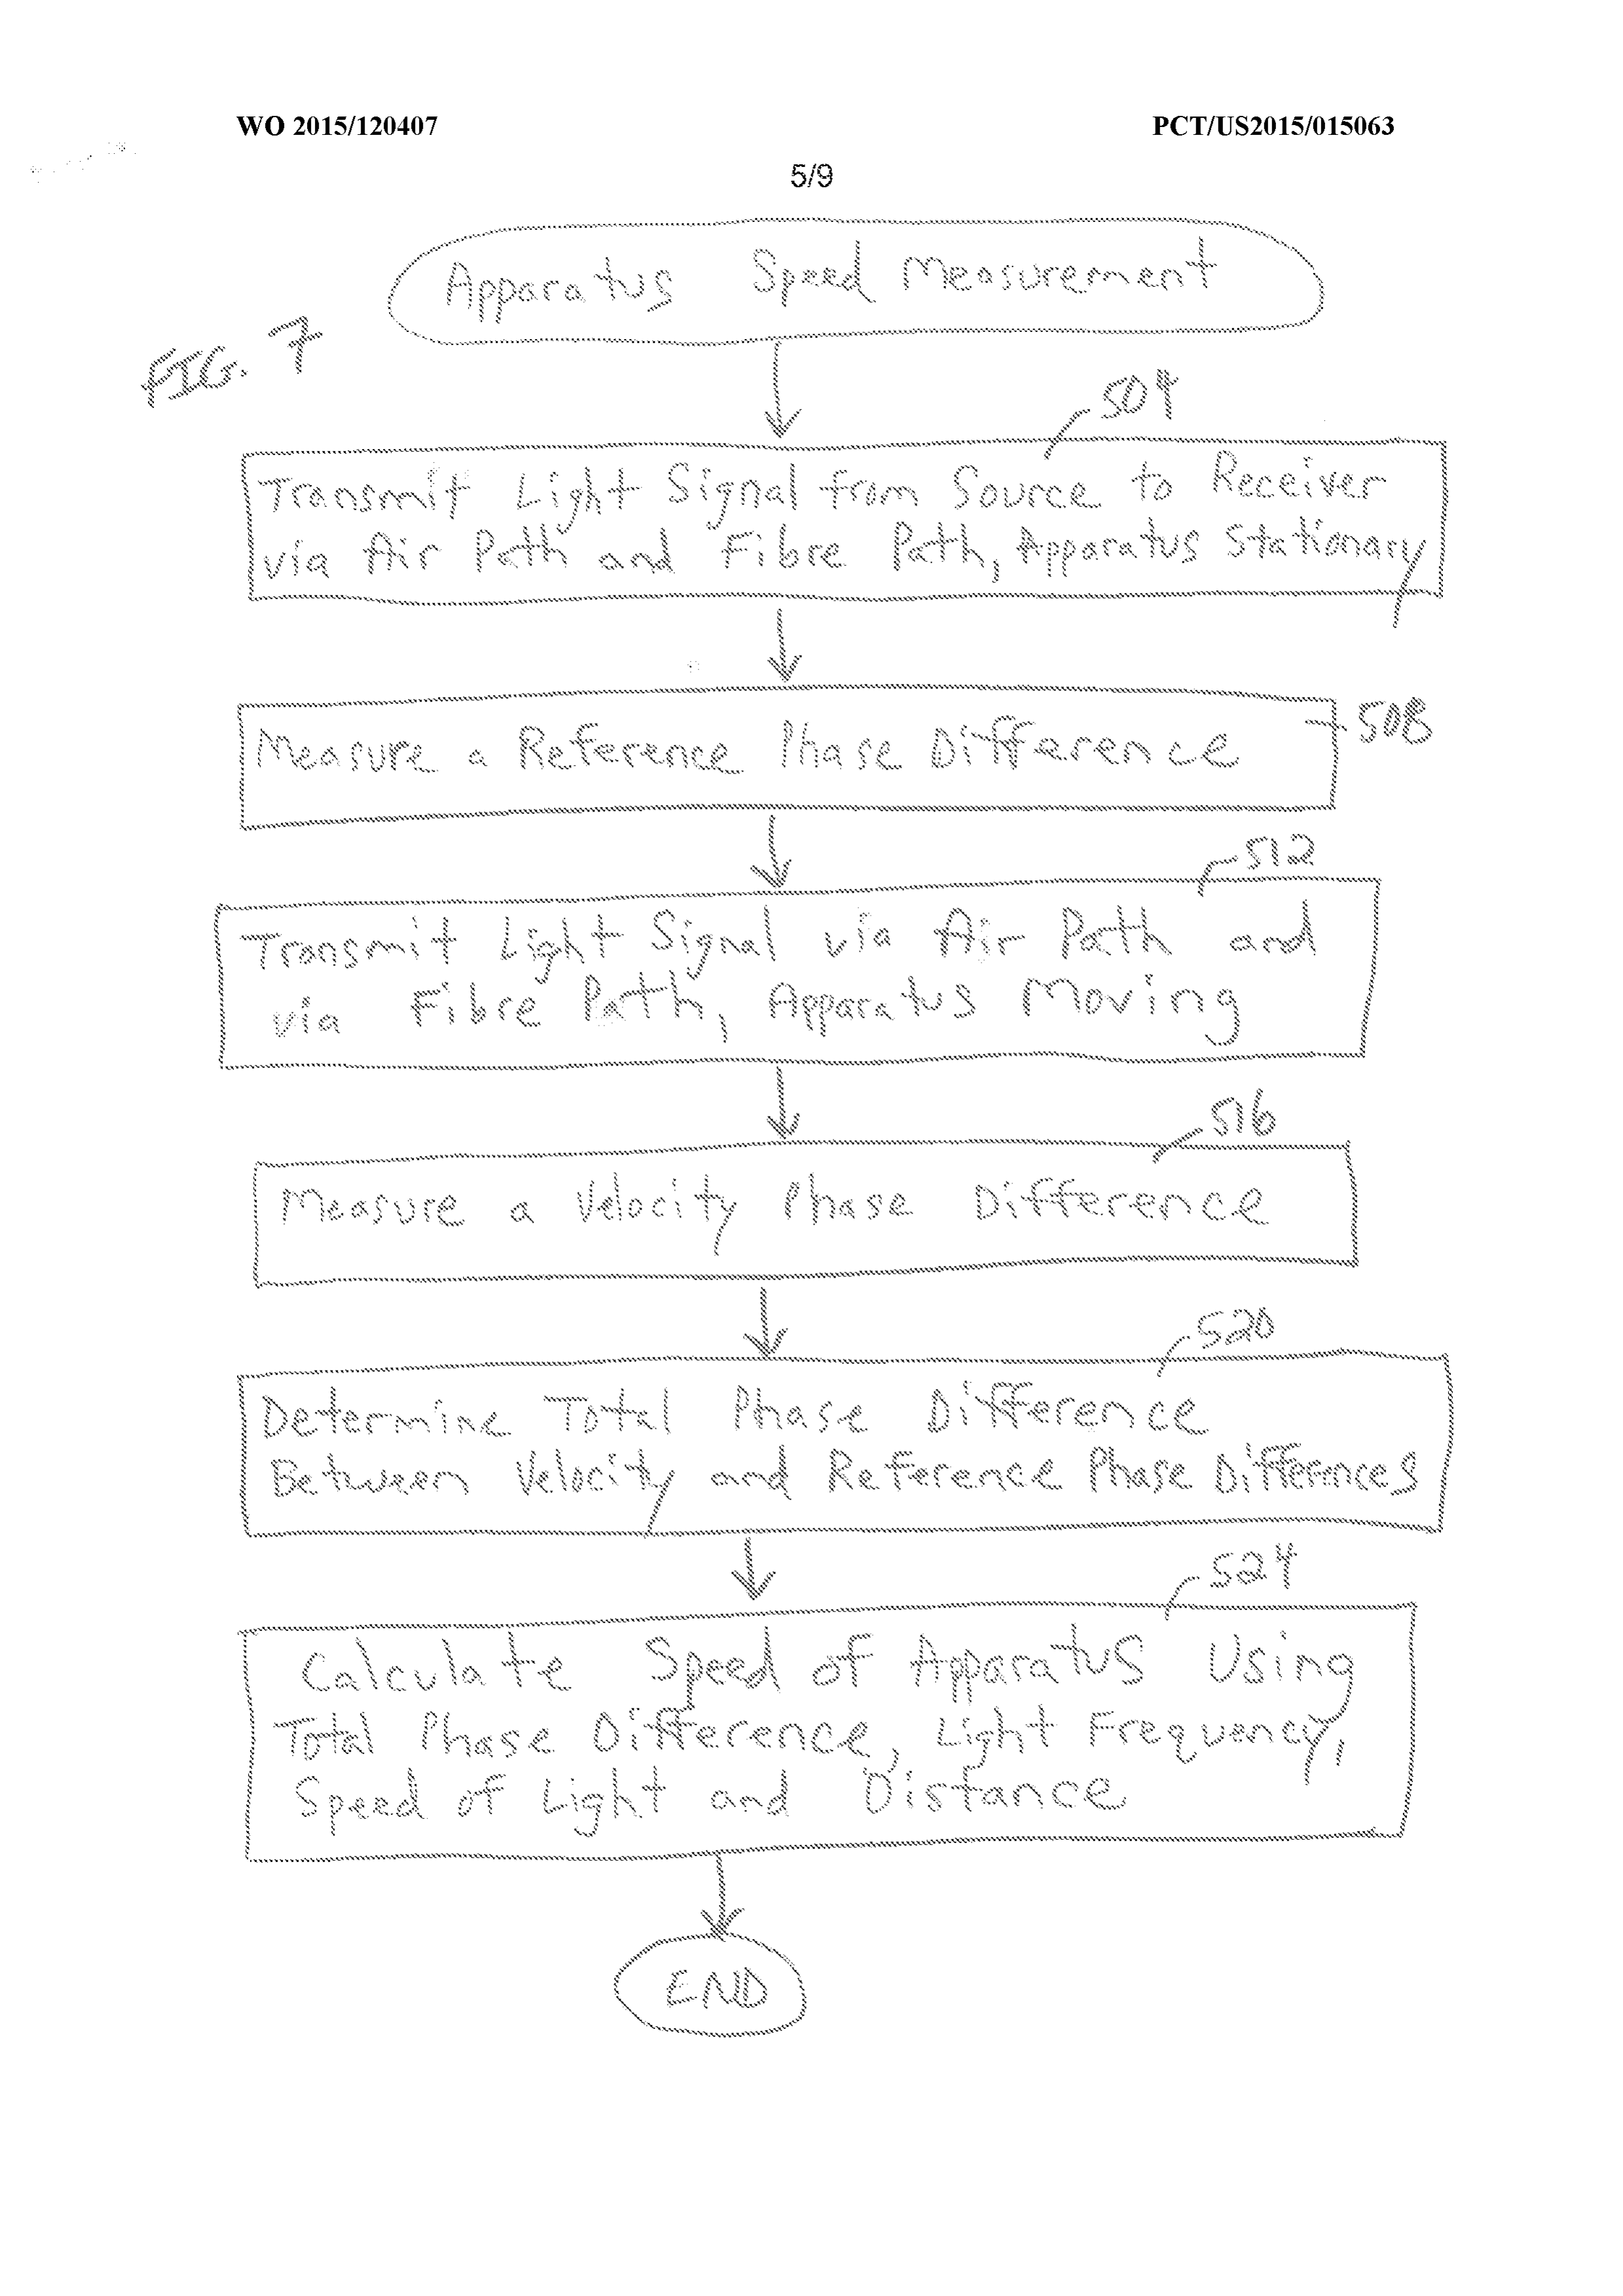 WO 2015/120407 PCT/US2015/015063
5/9
Apparatus Speed Measurement
FIG. 7
504
Transmit Light Signal from Source to Receiver
via Air Path and Fibre Path, Apparatus Stationary
Measure a Reference Phase Difference
508
512
Transmit Light Signal via Air Path and
via Fibre Path, Apparatus Moving
516
Measure a Velocity Phase Difference
520
Determine Total Phase Difference
Between Velocity and Reference Phase Differences
524
Calculate Speed of Apparatus Using
Total Phase Difference, Light Frequency,
Speed of Light and Distance
END